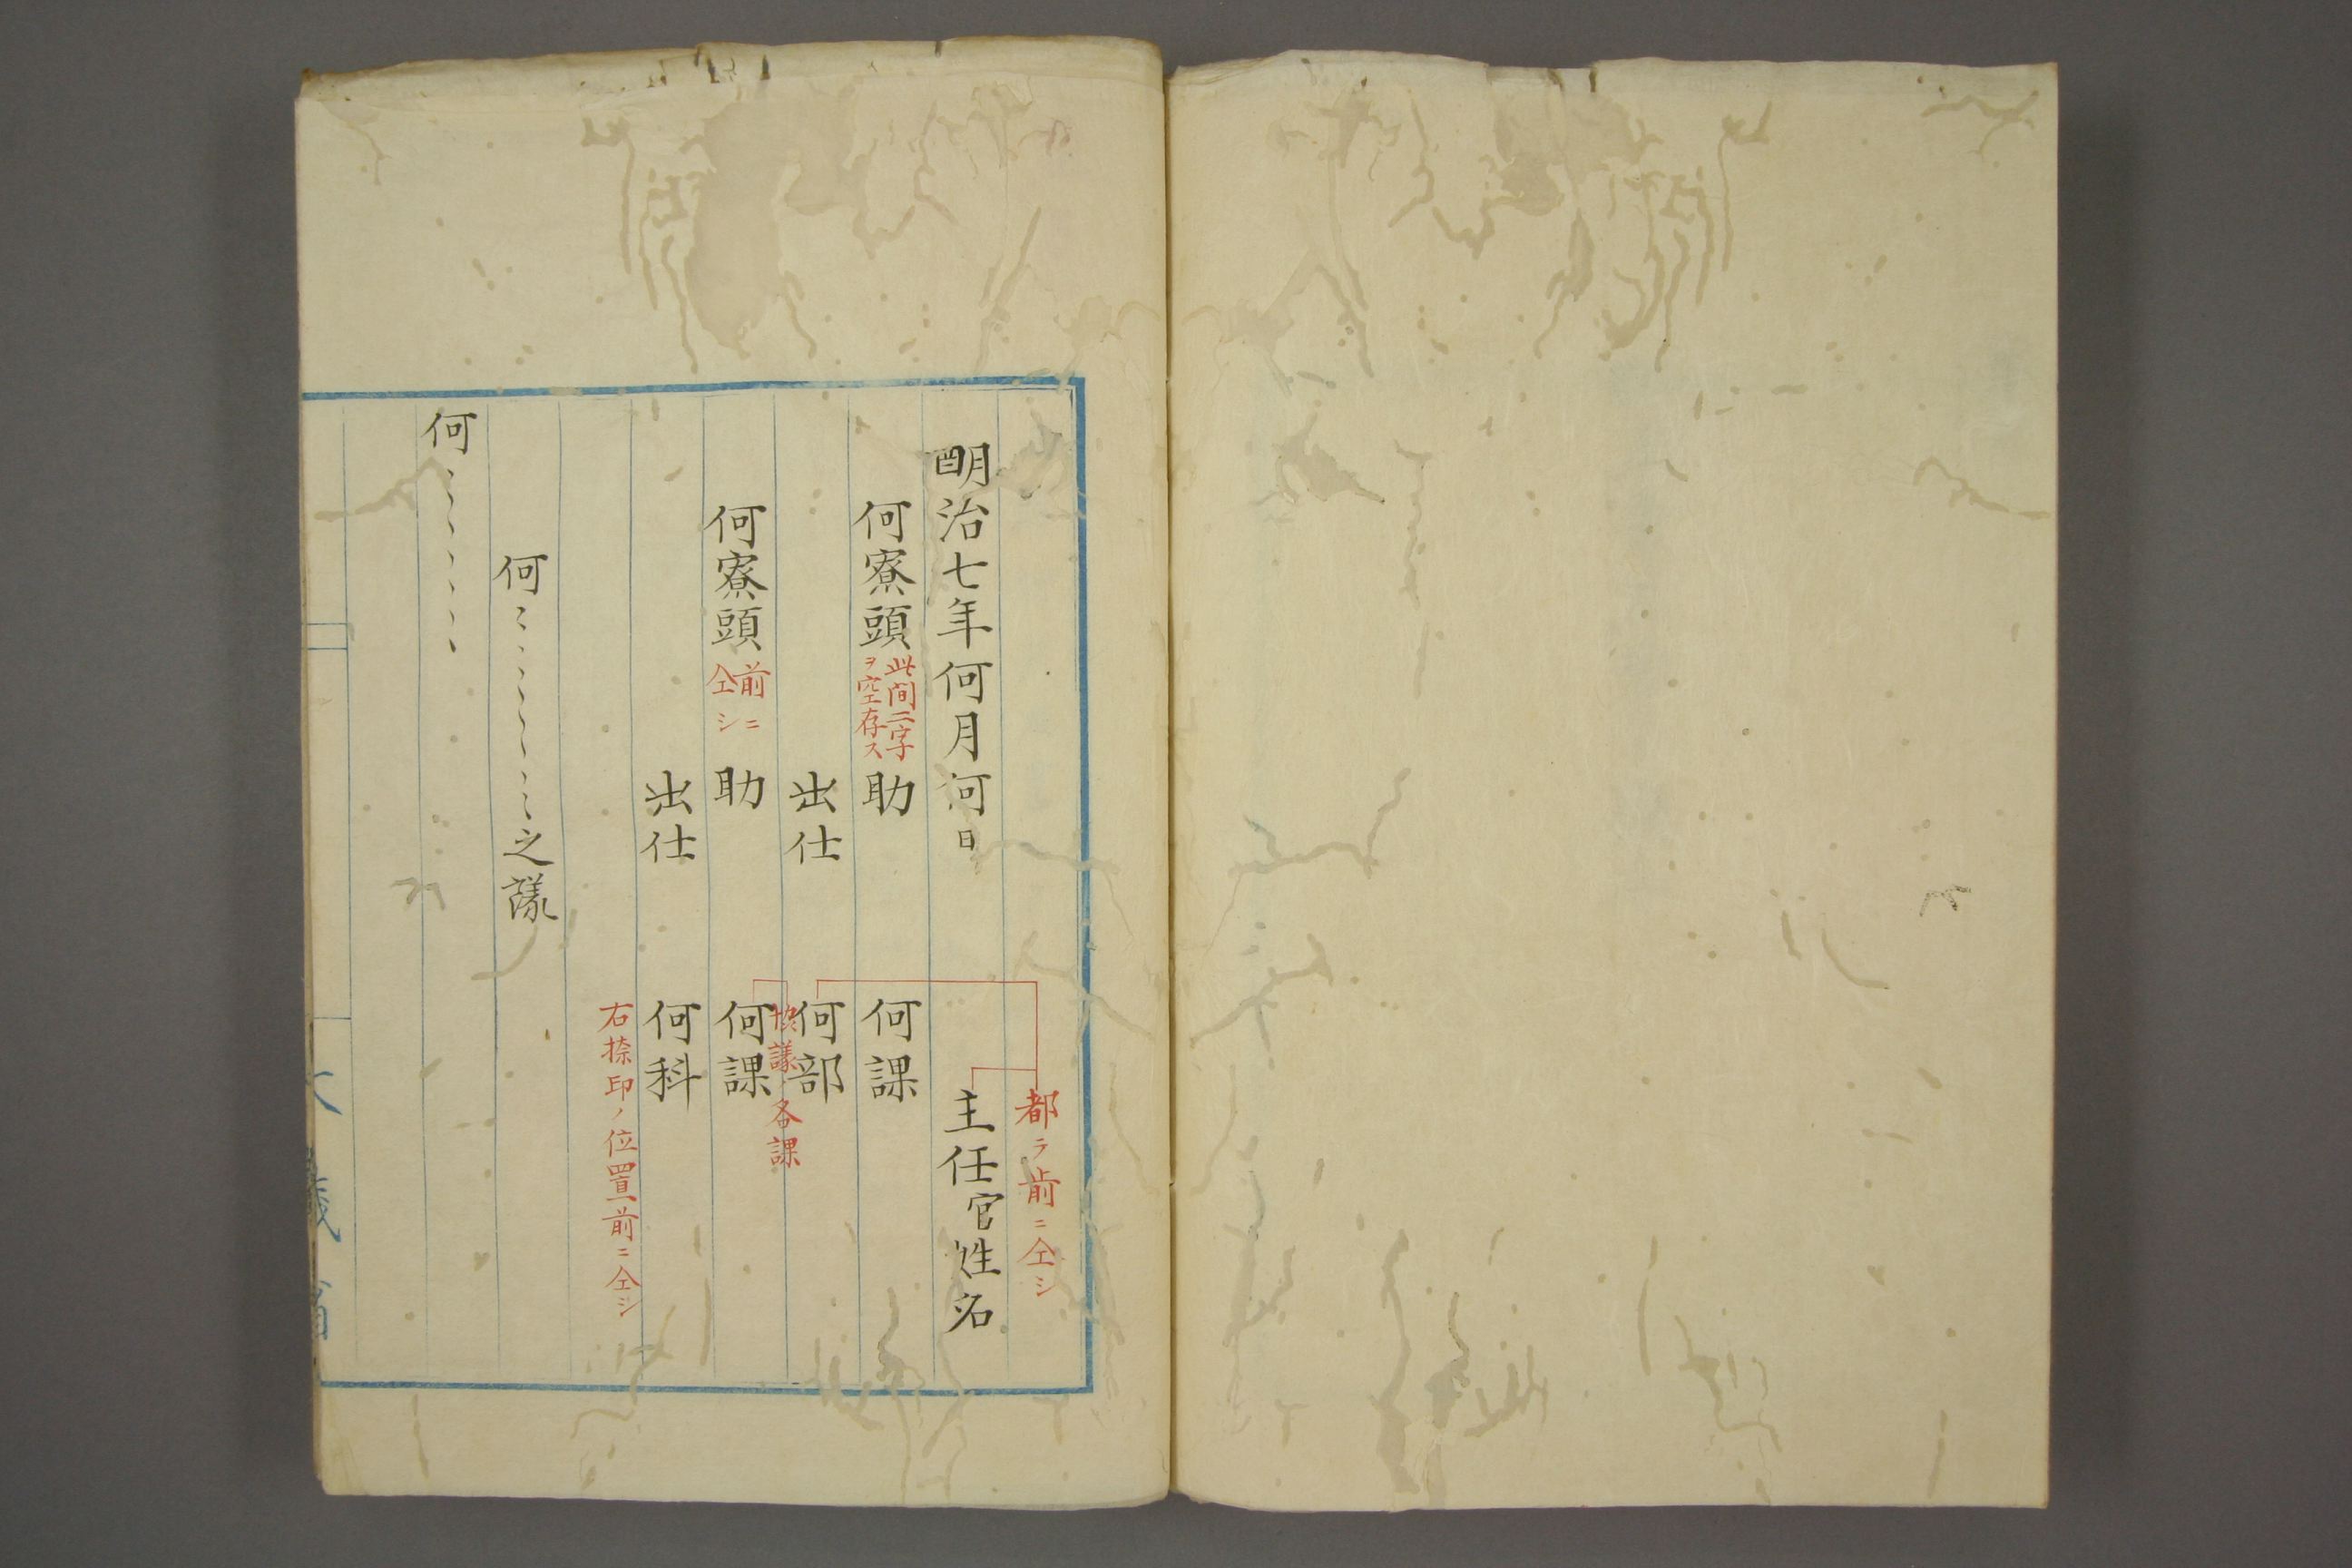 都テ前ニ仝シ
明治七年何月何日　主任官姓名
何寮頭　助　何課
此間二字
ヲ空存ス
出仕　何部
協議ノ各課
何寮頭　助　何課
前ニ
仝シ
出仕　何科
右捺印ノ位置前ニ仝シ
何〻〻〻〻〻〻之議
何〻〻〻〻
省